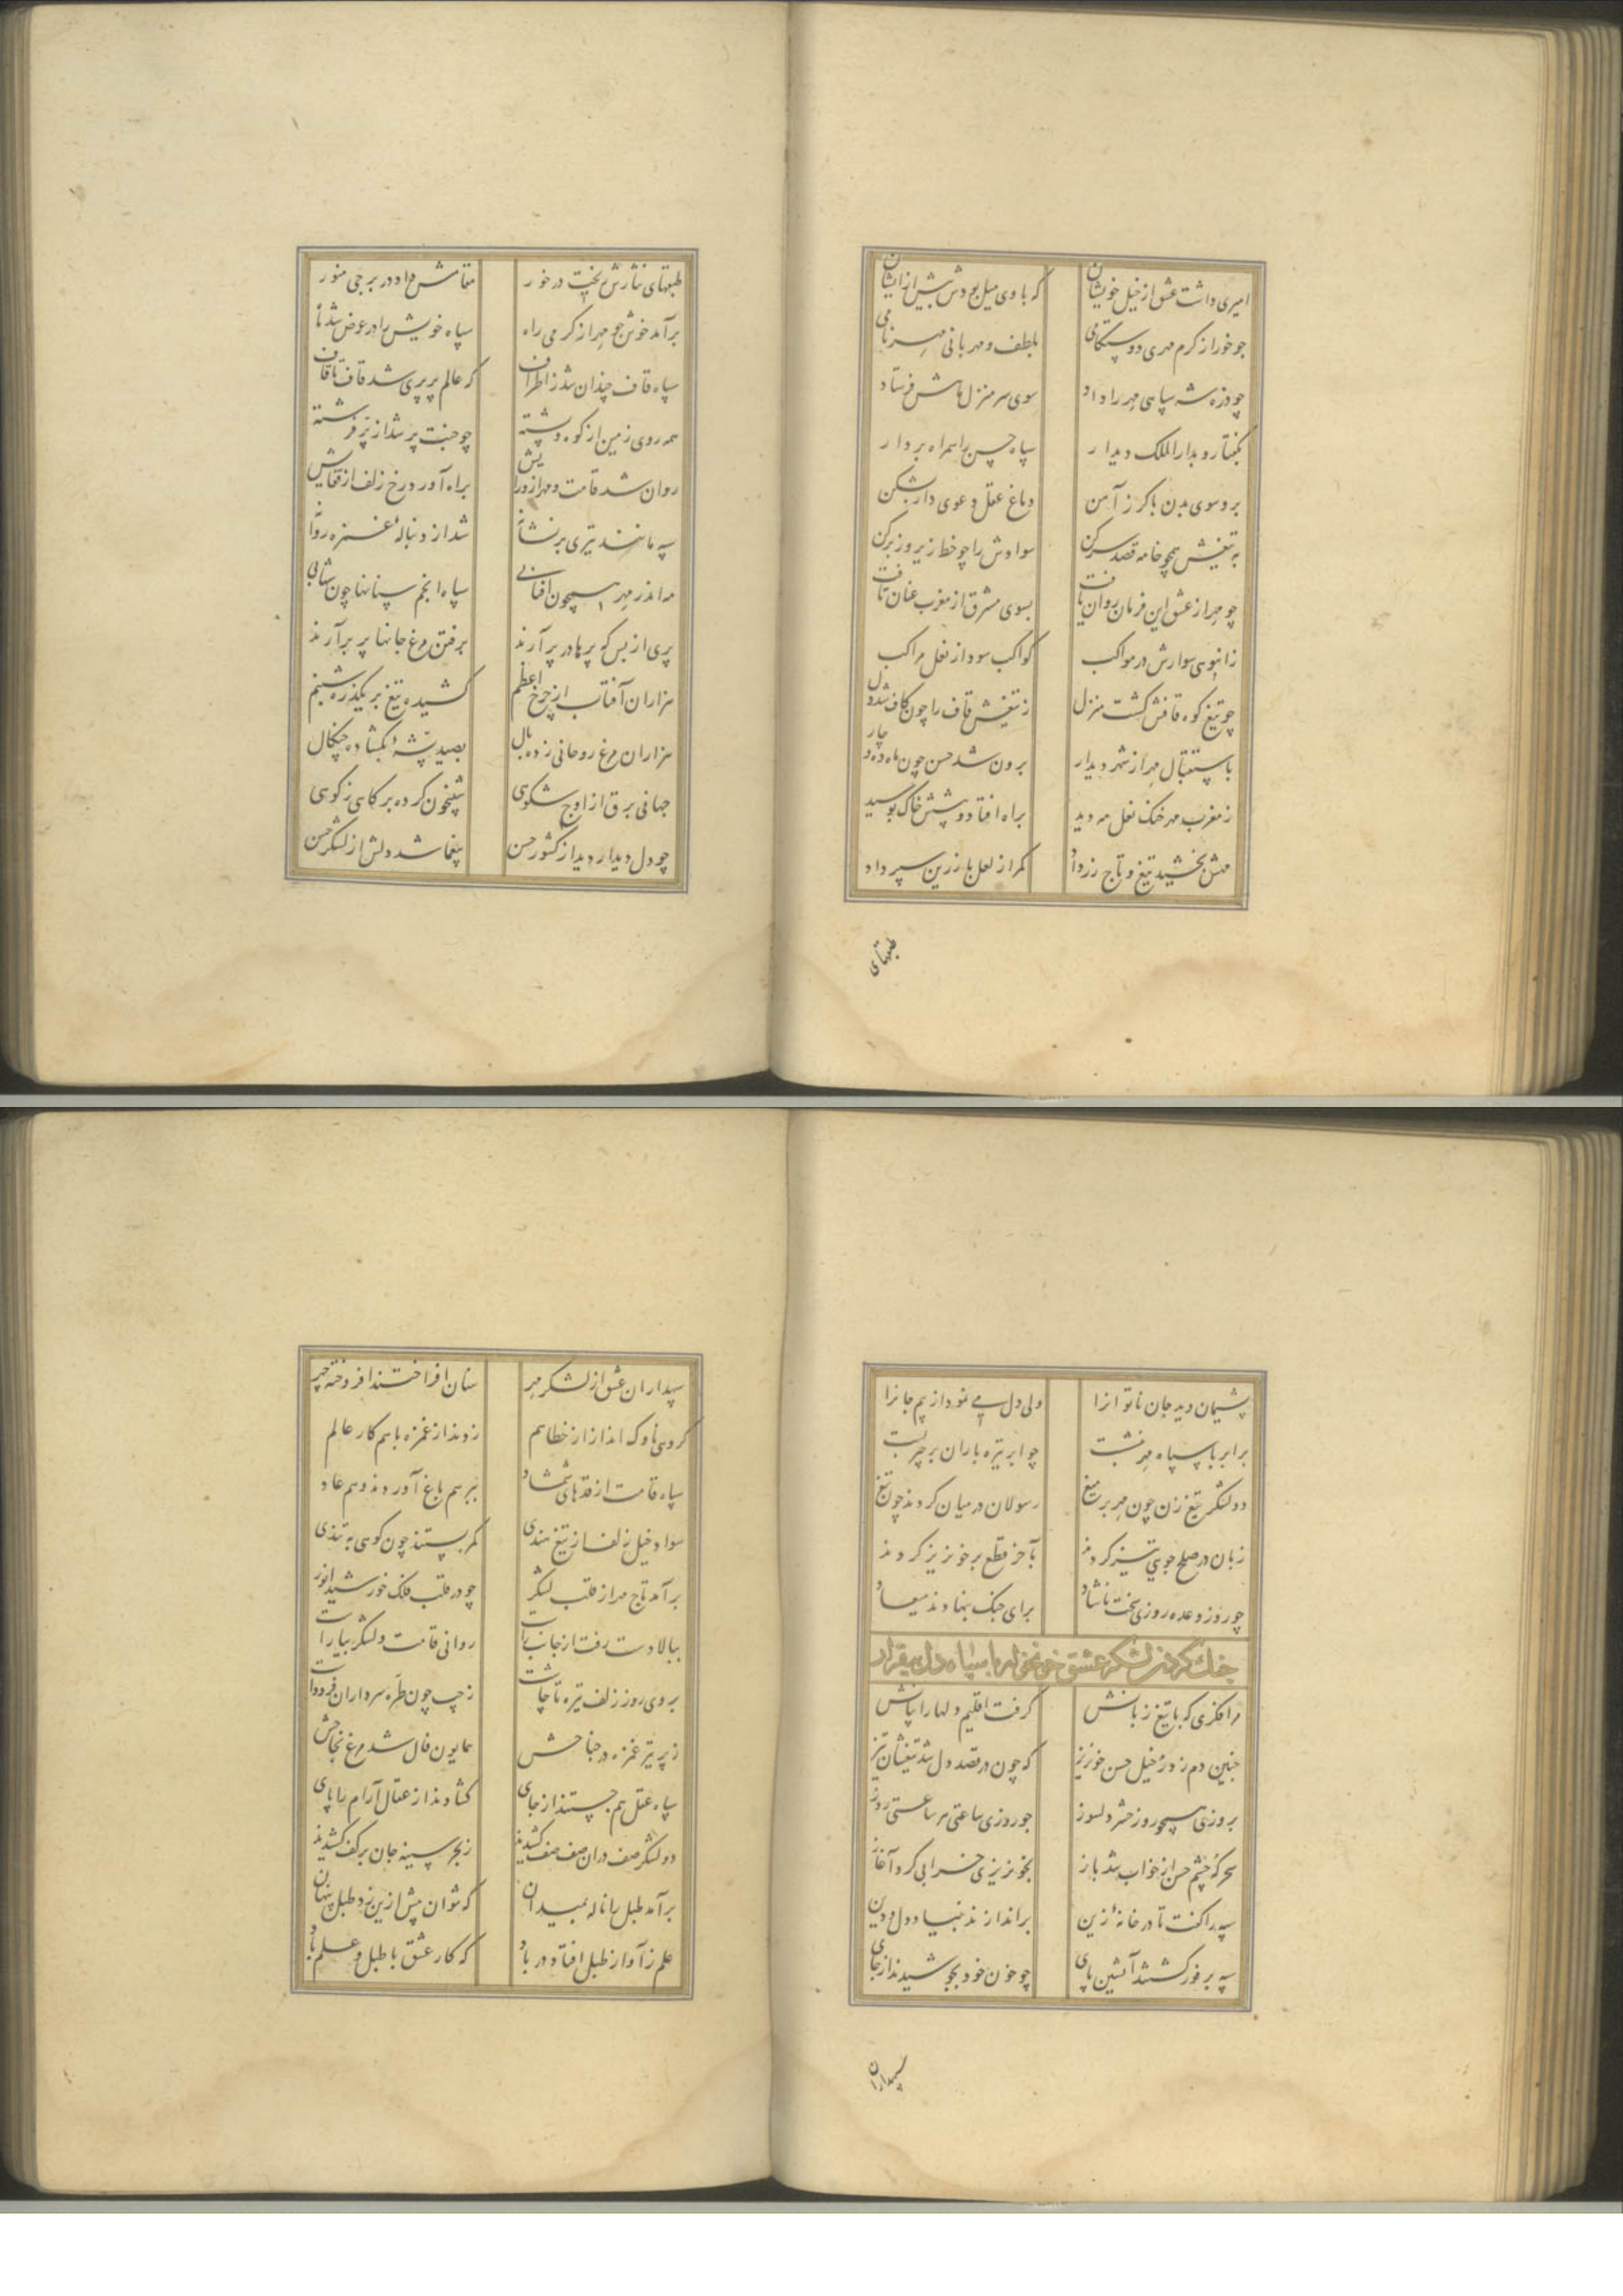 امیری داشت عشق از خیل خویشان که با وی میل بودش بیش از ایشان
چو خور از کرم مهری دوستکامی بلطف و مهربانی مهر نامی
چو ذره شه سپاهی مهر را داد سوی سر منزل ماهش فرستاد
بگفتا رو بدار الملک دیدار سپاه حسن را همراه بردار
برو سوی بدن با گرز آهن دماغ عقل دعوی دار بشکن
به تیغش همچو خامه قصد سر کن سوادش را چو خط زیر و زبر کن
چو مهر از عشق این فرمان روان یافت بسوی مشرق از مغرب عنان تافت
ز انبوهی سوارش در مواکب کواکب سود از نعل مراکب
چو تیغ کوه قافش گشت منزل ز تیغش قاف را چون کاف شد دل
باستقبال مهر از شهر دیدار برون شد حسن چون ماه ده و چار
ز مغرب مهر خنک نعل مه دید براه افتاد و پیشش خاک بوسید
مهش بخشید تیغ و تاج زر داد کمر از لعل با زرین سپر داد
طبقهای
طبقهای نثارش ریخت در خور مقامش داد در برجی منور
برآمد خوش چو مهر از گرمی راه سپاه خویش را در عرض شد ماه
سپاه قاف چندان شد ز اطراف که عالم پر پری شد قاف تا قاف
همه روی زمین از کوه و پشته چو جنت پر شد از پر فرشته
روان شد قامت و مهر از ورایش براه آورد رخ زلف از قفایش
سپه مانند تیری بر نشانه شد از دنبالهٔ غمزه روانه
مه اندر مهر همچون آفتابی سپاه انجم سنانها چون شهابی
پری از بس که پرها در پر آرند برفتن مرغ جانها پر برآرند
هزاران آفتاب از چرخ اعظم کشیده تیغ بر یکذره شبنم
هزاران مرغ روحانی زده بال بصید پشهٔ بگشاده چنگال
جهانی برق از اوج شکوهی شبیخون کرده بر کاهی ز کوهی
چو دل دیدار دید از کشور حسن بیغما شد دلش از لشکر حسن
پشیمان دید جان ناتوانرا ولی دل می نمود از بیم جانرا
برابر با سپاه مهر بنشست چو ابر تیره باران بر جهر بست
دو لشکر تیغ زن چون مهر بر میغ رسولان در میان کردند چون تیغ
زبان در صلح جویی تیز کردند بآخر قطع بر خونریز کردند
چو روز وعده روزی سخت ناشاد برای جنک بنهادند میعاد
جنك كردن لشكر عشق خونخواره با سپاه دل بیقرار
مر افکری که با تیغ زبانش گرفت اقلیم دلها را بیانش
چنین دم زد ز خیل حسن خونریز که چون در قصد دل شد تیغشان تیز
بروزی همچو روز حشر دلسوز چو روزی ساعتی هر ساعتی روز
سحر که چشم حسن از خواب شد باز بخونریزی خرابی کرد آغاز
سپه را گفت تا در خانهٔ زین براندازند بنیاد دل و دین
سپه بر فور گشتند آتشین پای چو خون خود بجوشیدند از جای
سپهداران
سپهداران عشق از لشکر مهر سنان افراختند افروخته چهر
گروهی ناوک انداز از خطا هم زدند از غمزه با هم کار عالم
سپاه قامت از قدهای شمشاد بهر هم باغ آوردند و هم عاد
سواد خیل زلف از تیغ هندی کمر بستند چون کوهی به تندی
برآمد تاج مهر از قلب لشکر چو در قلب فلک خورشید انور
ببالا دست رفت از جانب راست روانی قامت و لشکر بیاراست
بروی روز زلف تیره تا چاشت ز چپ چون طره سرداران فرو داشت
ز پر تیر غمزه در جناحش همایون فال شد مرغ نجاحش
سپاه عقل هم جستند از جای گشادند از عقال آرام را پای
دو لشکر صف دران صف صف کشیدند ز بحر سینه جان بر کف کشیدند
برآمد طبل را ناله بمیدان که نتوان بیش ازین زد طبل پنهان
علم ز آواز طبل افتاد در باد که کار عشق با طبل و علم باد